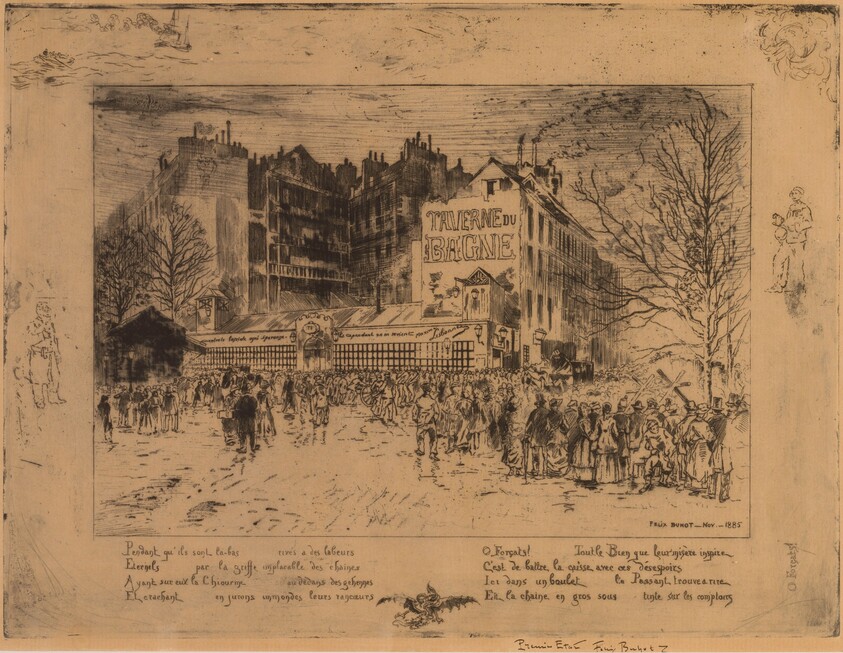 TAVERNE DU
BAGNE
FELIX BUHOT — NOV — 1885
Pendant qu'ils sont la-bas rivés a des labeurs
Eternels par la griffe implacable des chaines
Ayant sur eux la Chiourme au dedans des gehennes
Et crachant en jurons immondes leurs rancœurs
O Forçats! Tout le Bien que leur misère inspire
C'est de battre la caisse avec ces désespoirs
Ici dans un boulet le Passant trouve a rire
Et la chaine en gros sous tinte sur les comptoirs
O Forçats!
Premier Etat Felix Buhot